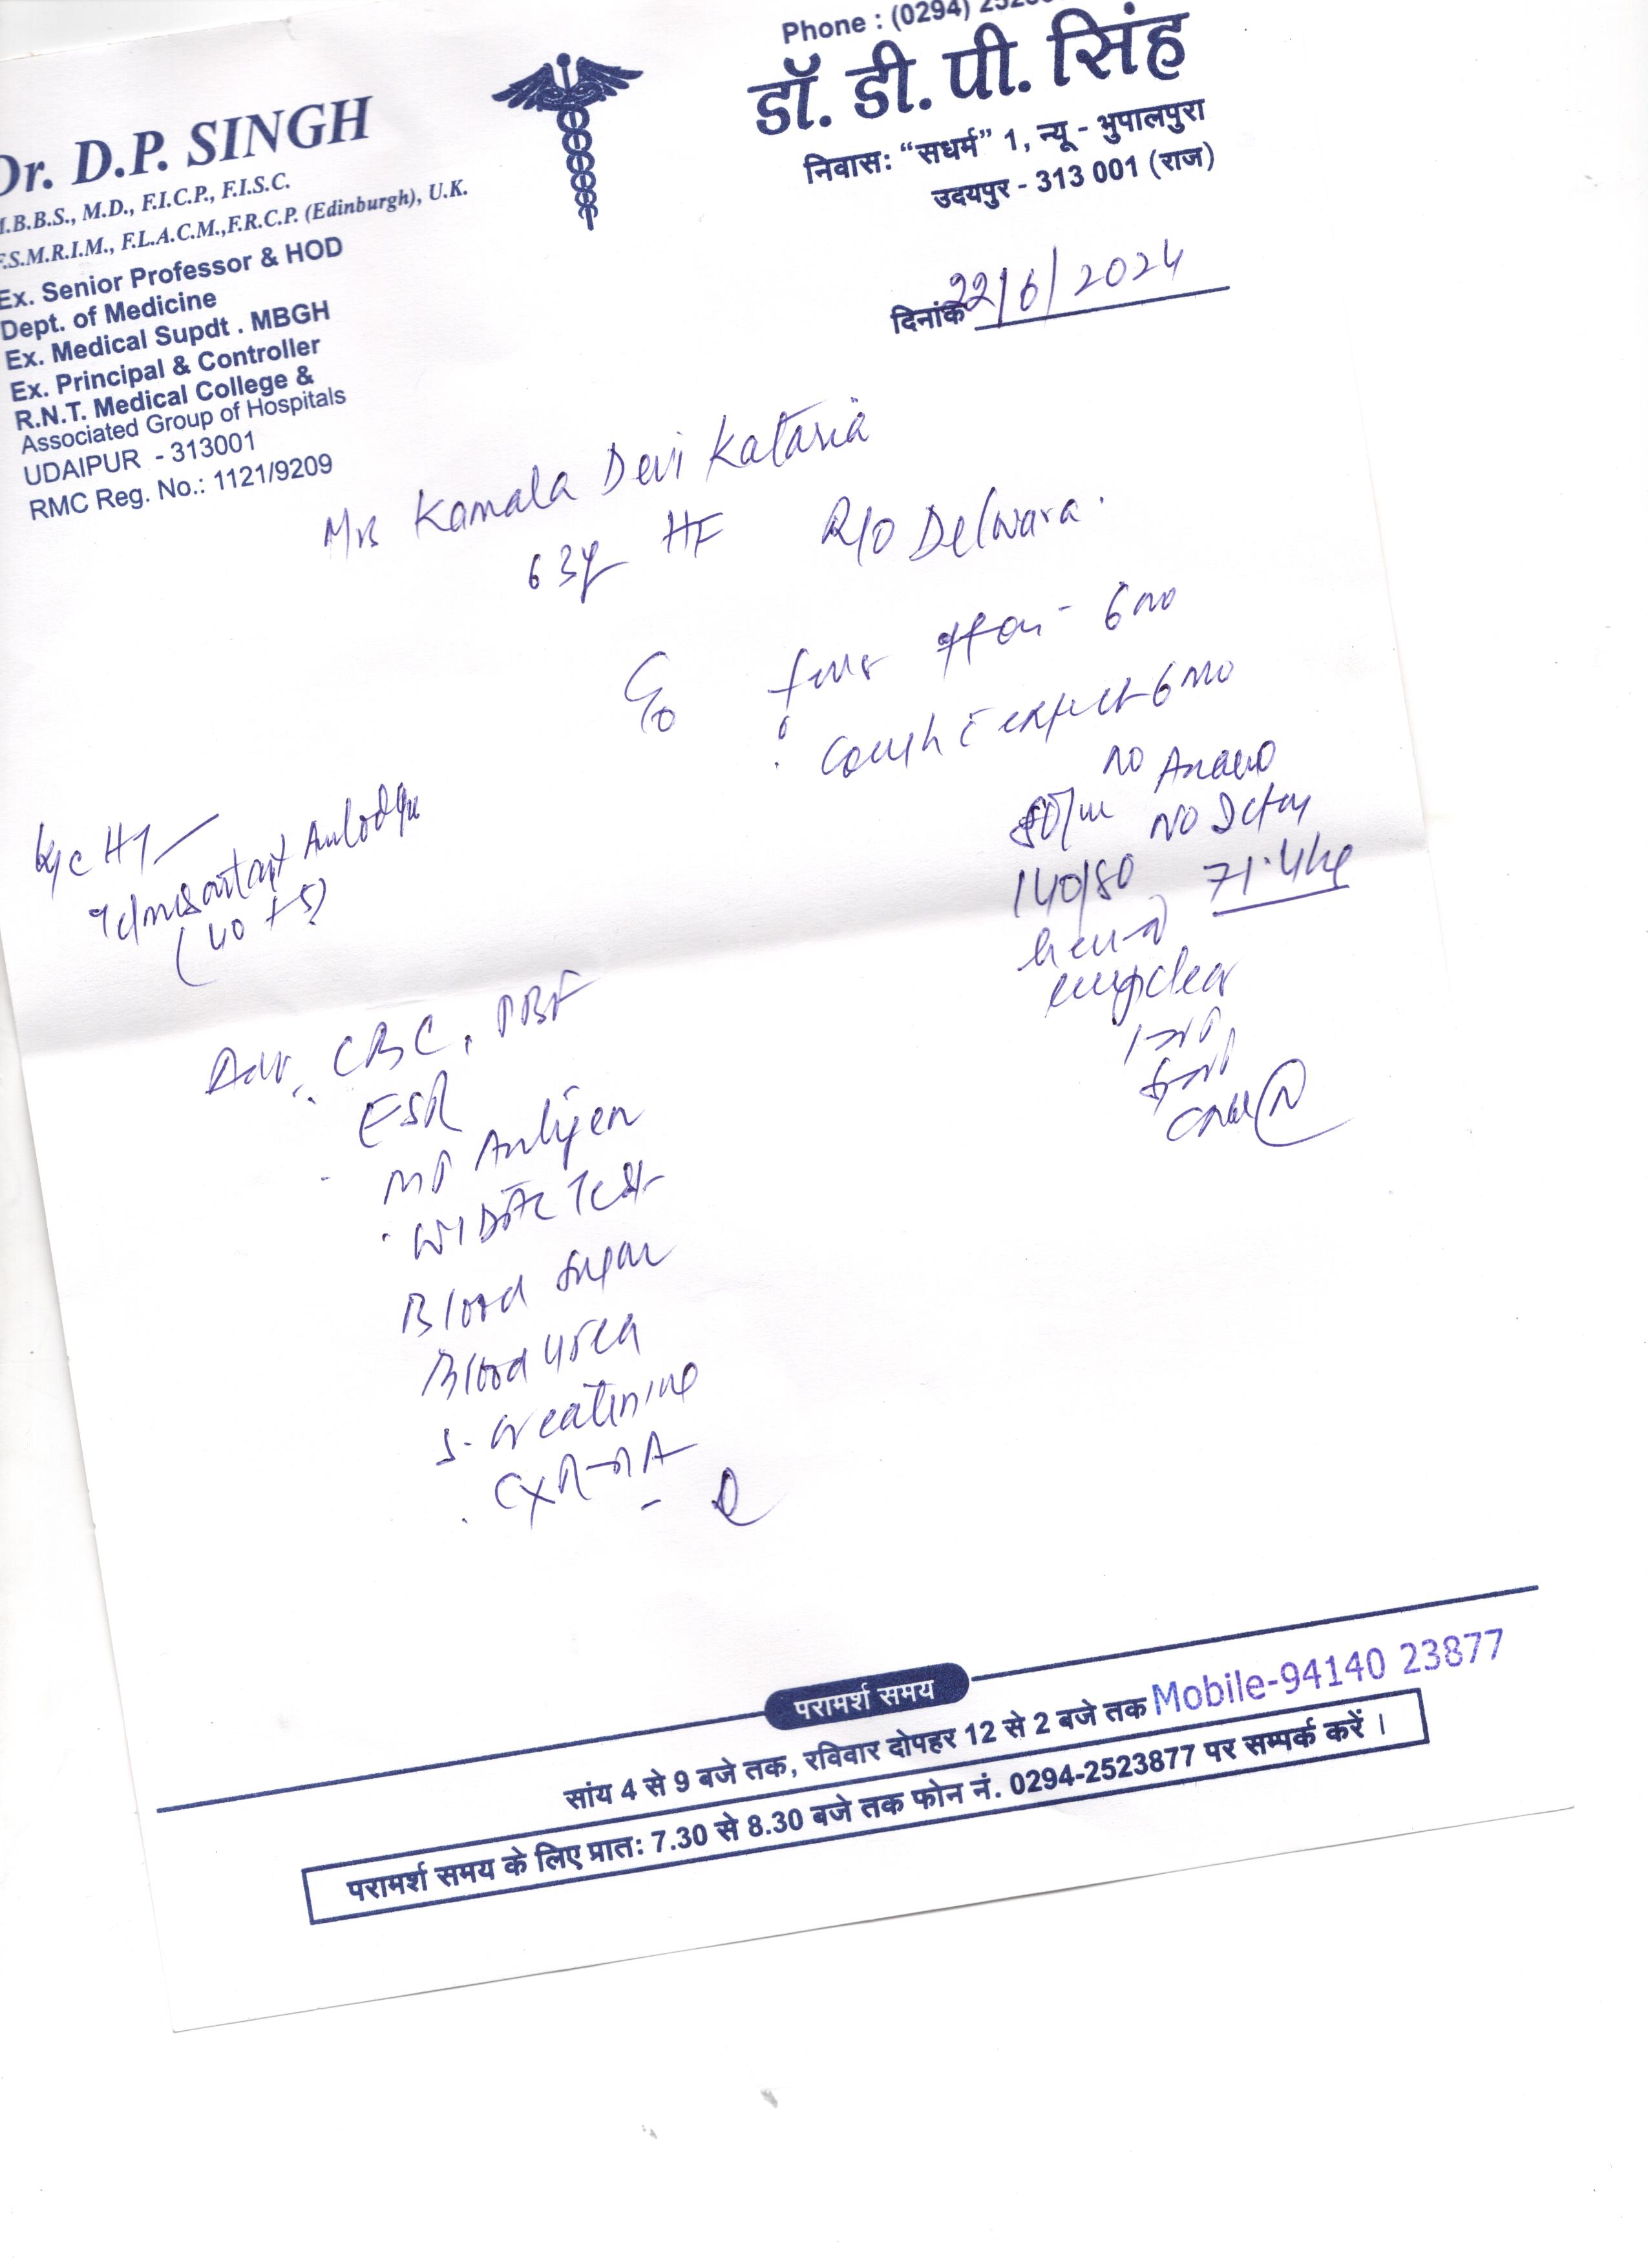 Phone : (0294)
Dr. D.P. SINGH
M.B.B.S., M.D., F.I.C.P., F.I.S.C.
F.S.M.R.I.M., F.L.A.C.M.,F.R.C.P. (Edinburgh), U.K.
Ex. Senior Professor & HOD
Dept. of Medicine
Ex. Medical Supdt . MBGH
Ex. Principal & Controller
R.N.T. Medical College &
Associated Group of Hospitals
UDAIPUR - 313001
RMC Reg. No.: 1121/9209
डॉ. डी. पी. सिंह
निवास: “सधर्म” 1, न्यू - भुपालपुरा
उदयपुर - 313 001 (राज)
दिनांक 22/6/2024
Mrs Kamala Devi Kataria
63y HF R/o Delwara.
C/o
6 mo
cough c expect 6 mo
no
80/m No
140/80 71.4 kg
clear
K/c HT
Telmisartan Amlodipin
(40 + 5)
Adv. CBC, PBF
ESR
MP Antigen
WIDAL Test
Blood Sugar
Blood Urea
S. Creatinine
CXR-PA
परामर्श समय
सांय 4 से 9 बजे तक, रविवार दोपहर 12 से 2 बजे तक Mobile-94140 23877
परामर्श समय के लिए प्रात: 7.30 से 8.30 बजे तक फोन नं. 0294-2523877 पर सम्पर्क करें ।